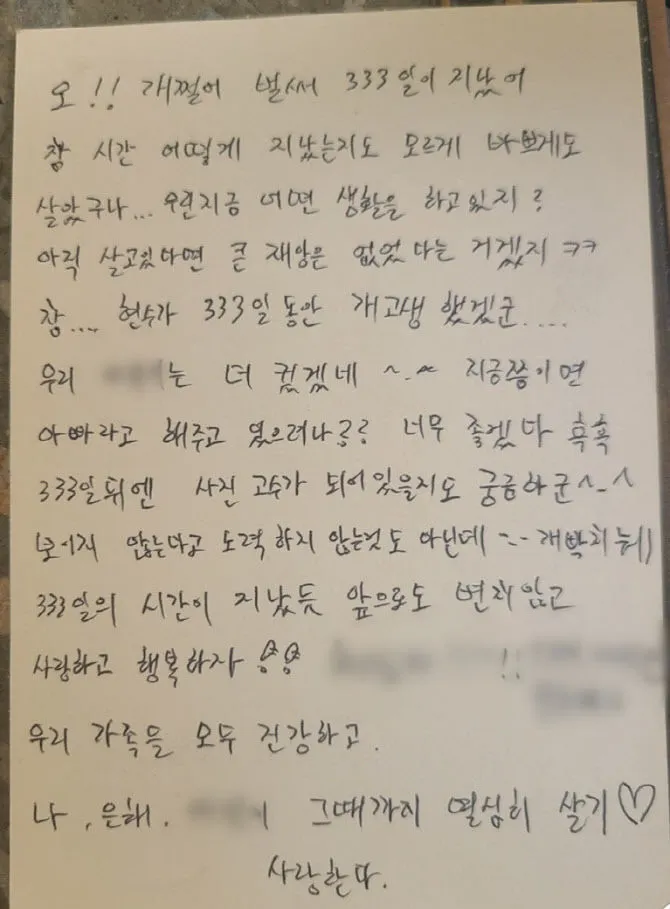 오!! 개쩔어 벌써 333일이 지났어
참 시간 어떻게 지났는지도 모르게 바쁘게도
살았구나... 우린지금 어떤 생활을 하고있지?
아직 살고있다면 큰 재앙은 없었다는 거겠지 ㅋㅋ
참.... 현수가 333일동안 개고생 했겠군....
우리 는 더 컸겠네 ^-^ 지금쯤이면
아빠라고 해주고 있으려나?? 너무 좋겠다 흑흑
333일뒤엔 사진 고수가 되어있을지도 궁금하군^-^
보이지 않는다고 노력하지 않는것도 아닌데 --
333일의 시간이 지났듯 앞으로도 변치않고
사랑하고 행복하자 !!
우리 가족들 모두 건강하고.
나, 은해, 그때까지 열심히 살기♡
사랑한다.